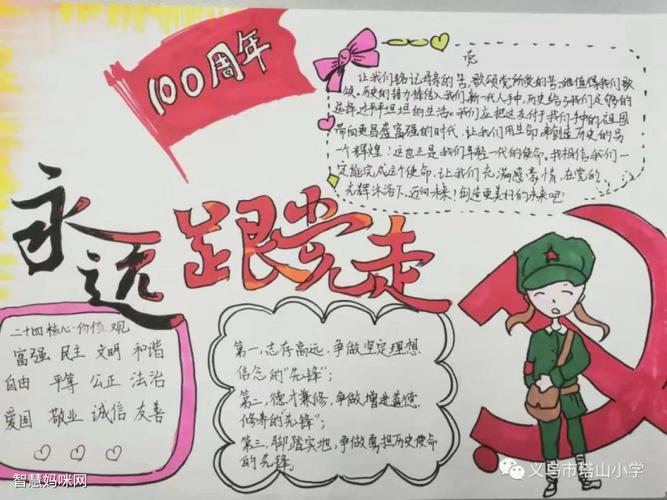 100周年
永远跟党走
让我们铭记群
的苦,歌颂党所受的苦,
颂。历史的接力棒传入我们新一代人手中,历史给了我们足够的
选择过平平坦坦的生活。我们应把这交付于我们手中的祖国
带向更昌盛富强的时代,让我们用生命来创造历史的另
一个辉煌!这也正是我们年轻一代的使命。我相信我们一
定能完成这个使命,让我们充满感豪情,在党的
光辉沐浴下,迈向未来!创造更美好的未来吧!
二十四核心·价值观
富强 民主 文明 和谐
自由 平等 公正 法治
爱国 敬业 诚信 友善
第一,志存高远,争做坚定理想
信念的“先锋”;
第二,德才兼修,争做增进道德
修养的“先锋”;
第三,脚踏实地,争做勇担历史使命
的先锋。
智慧妈咪网
义乌市塔山小学